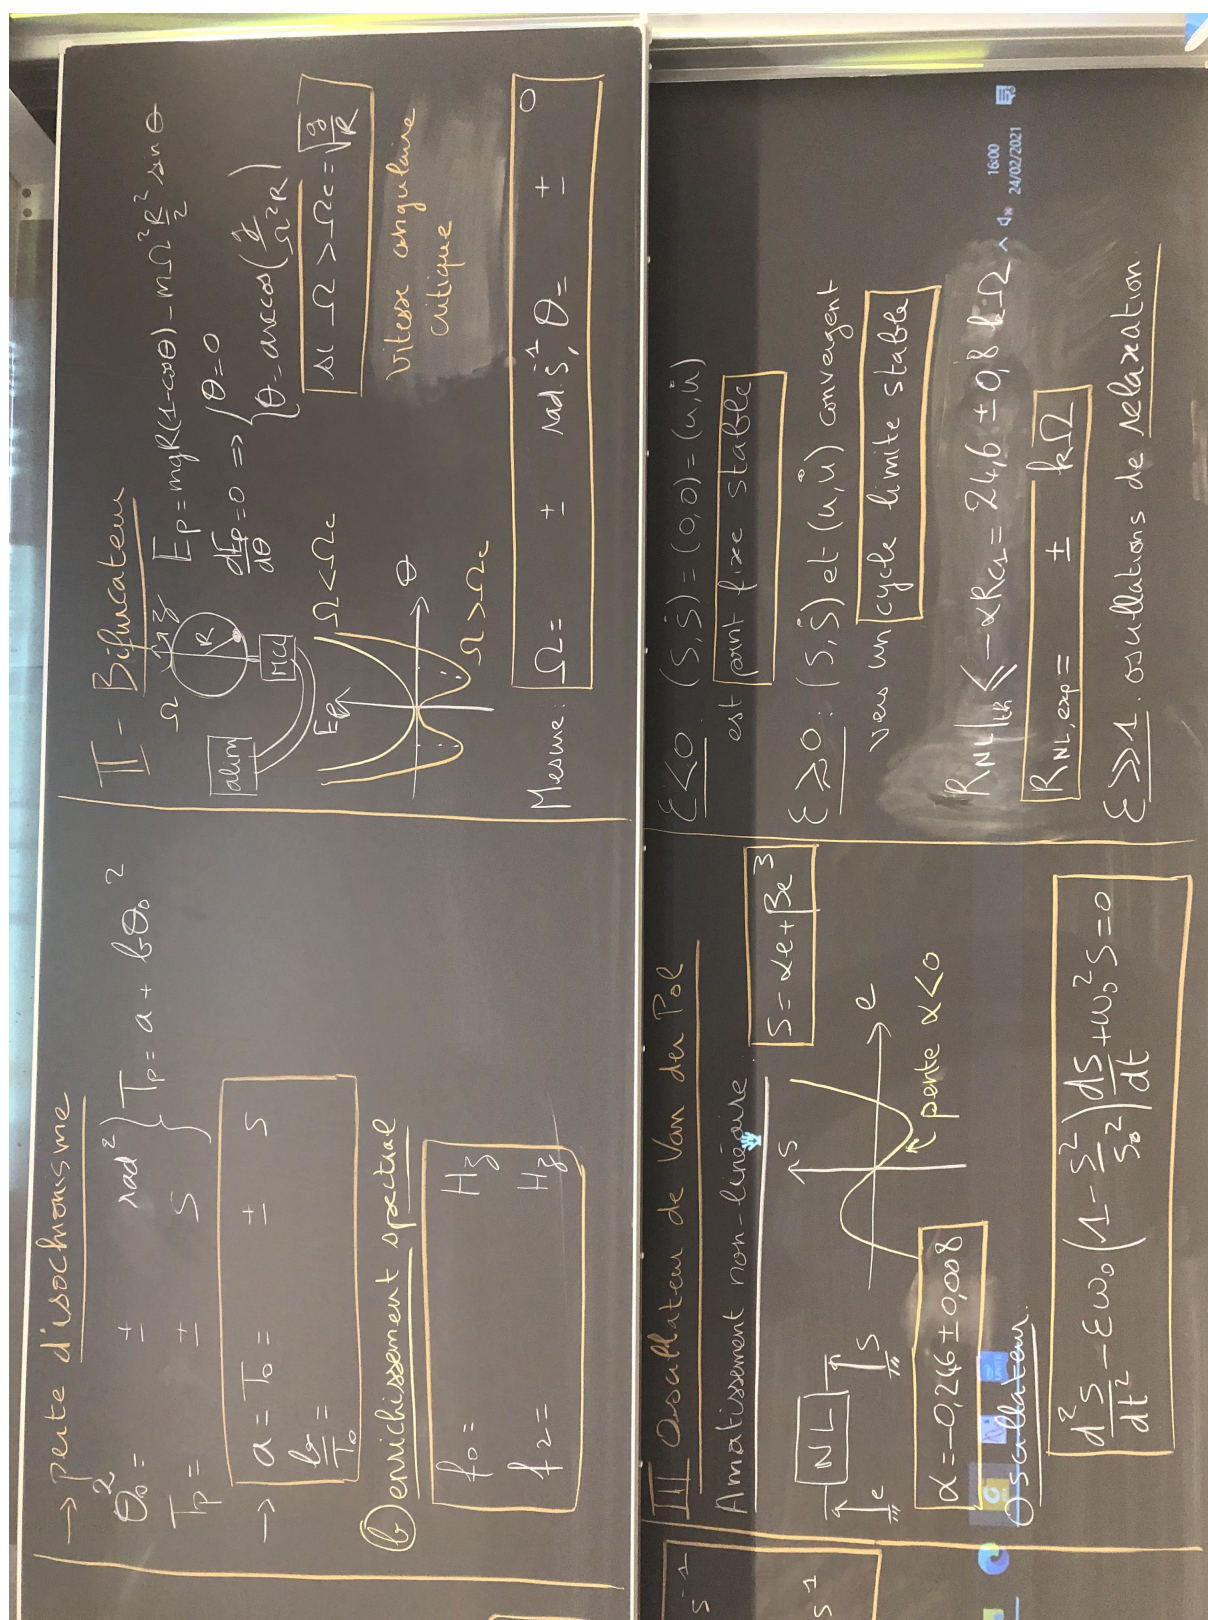 → perte d'isochronisme
θ₀² = ± rad²
Tp = ± s
} Tp = a + bθ₀²
→ a = T₀ = ± s
b/T₀ =
(b) enrichissement spectral
f₀ = Hz
f₂ = Hz
II - Bifurcateur
Ω
z
R
alim
MCC
Ep = mgR(1-cosθ) - mΩ²R²/2 sin θ
dEp/dθ = 0 => { θ = 0
θ = arccos(g/Ω²R)
si Ω > Ωc = √(g/R)
vitesse angulaire
critique
Ep
Ω < Ωc
θ
Ω > Ωc
Mesure : Ω = ± rad.s⁻¹, θ = ± °
s⁻¹
s⁻¹
III Oscillateur de Van der Pol
Amortissement non-linéaire :
S = αe + βe³
NL
e
S
S
e
pente α<0
α = -0,246 ± 0,008
Oscillateur
d²S/dt² - εω₀(1 - S²/S₀²) dS/dt + ω₀²S = 0
ε<0 : (S,Ṡ) = (0,0) = (u,u̇)
est point fixe stable
ε⩾0 : (S,Ṡ) et (u,u̇) convergent
vers un cycle limite stable
R_NL|th ⩽ -αRc1 = 24,6 ± 0,8 kΩ
R_NL,exp = ± kΩ
ε≫1 : oscillations de relaxation
16:00
24/02/2021